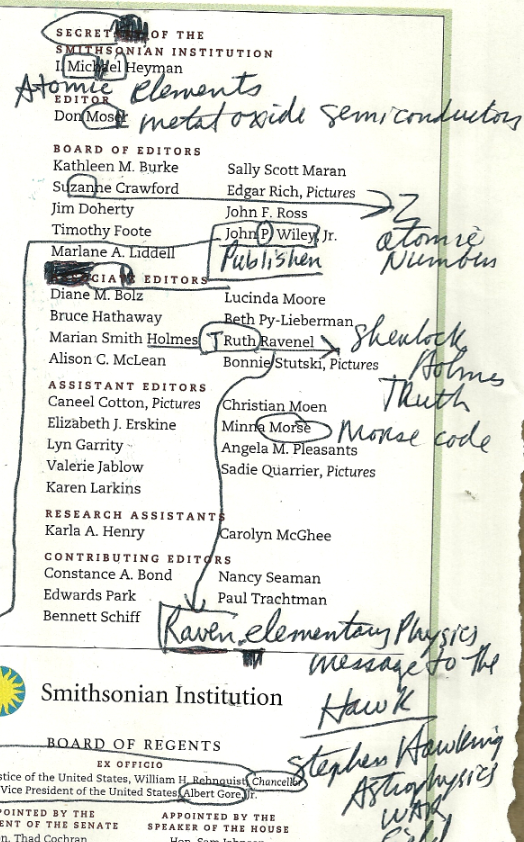 SECRET OF THE
SMITHSONIAN INSTITUTION
I. Michael Heyman
Atomic Elements
EDITOR
Don Moser metal oxide semiconductors
BOARD OF EDITORS
Kathleen M. Burke Sally Scott Maran
Suzanne Crawford Edgar Rich, Pictures Z
Jim Doherty John F. Ross
Timothy Foote John P. Wiley, Jr. atomic
Marlane A. Liddell Publisher Number
CIATE EDITORS
Diane M. Bolz Lucinda Moore
Bruce Hathaway Beth Py-Lieberman
Marian Smith Holmes T Ruth Ravenel Sherlock
Alison C. McLean Bonnie Stutski, Pictures Holmes
ASSISTANT EDITORS Truth
Caneel Cotton, Pictures Christian Moen
Elizabeth J. Erskine Minna Morse Morse code
Lyn Garrity Angela M. Pleasants
Valerie Jablow Sadie Quarrier, Pictures
Karen Larkins
RESEARCH ASSISTANTS
Karla A. Henry Carolyn McGhee
CONTRIBUTING EDITORS
Constance A. Bond Nancy Seaman
Edwards Park Paul Trachtman
Bennett Schiff
Raven. elementary Physics
message to the
Hawk
Smithsonian Institution
BOARD OF REGENTS
Stephen Hawking
EX OFFICIO
stice of the United States, William H. Rehnquist, Chancellor
Vice President of the United States, Albert Gore, Jr.
Astrophysics
WAR
POINTED BY THE APPOINTED BY THE
ENT OF THE SENATE SPEAKER OF THE HOUSE
n. Thad Cochran Hon. Sam Johnson